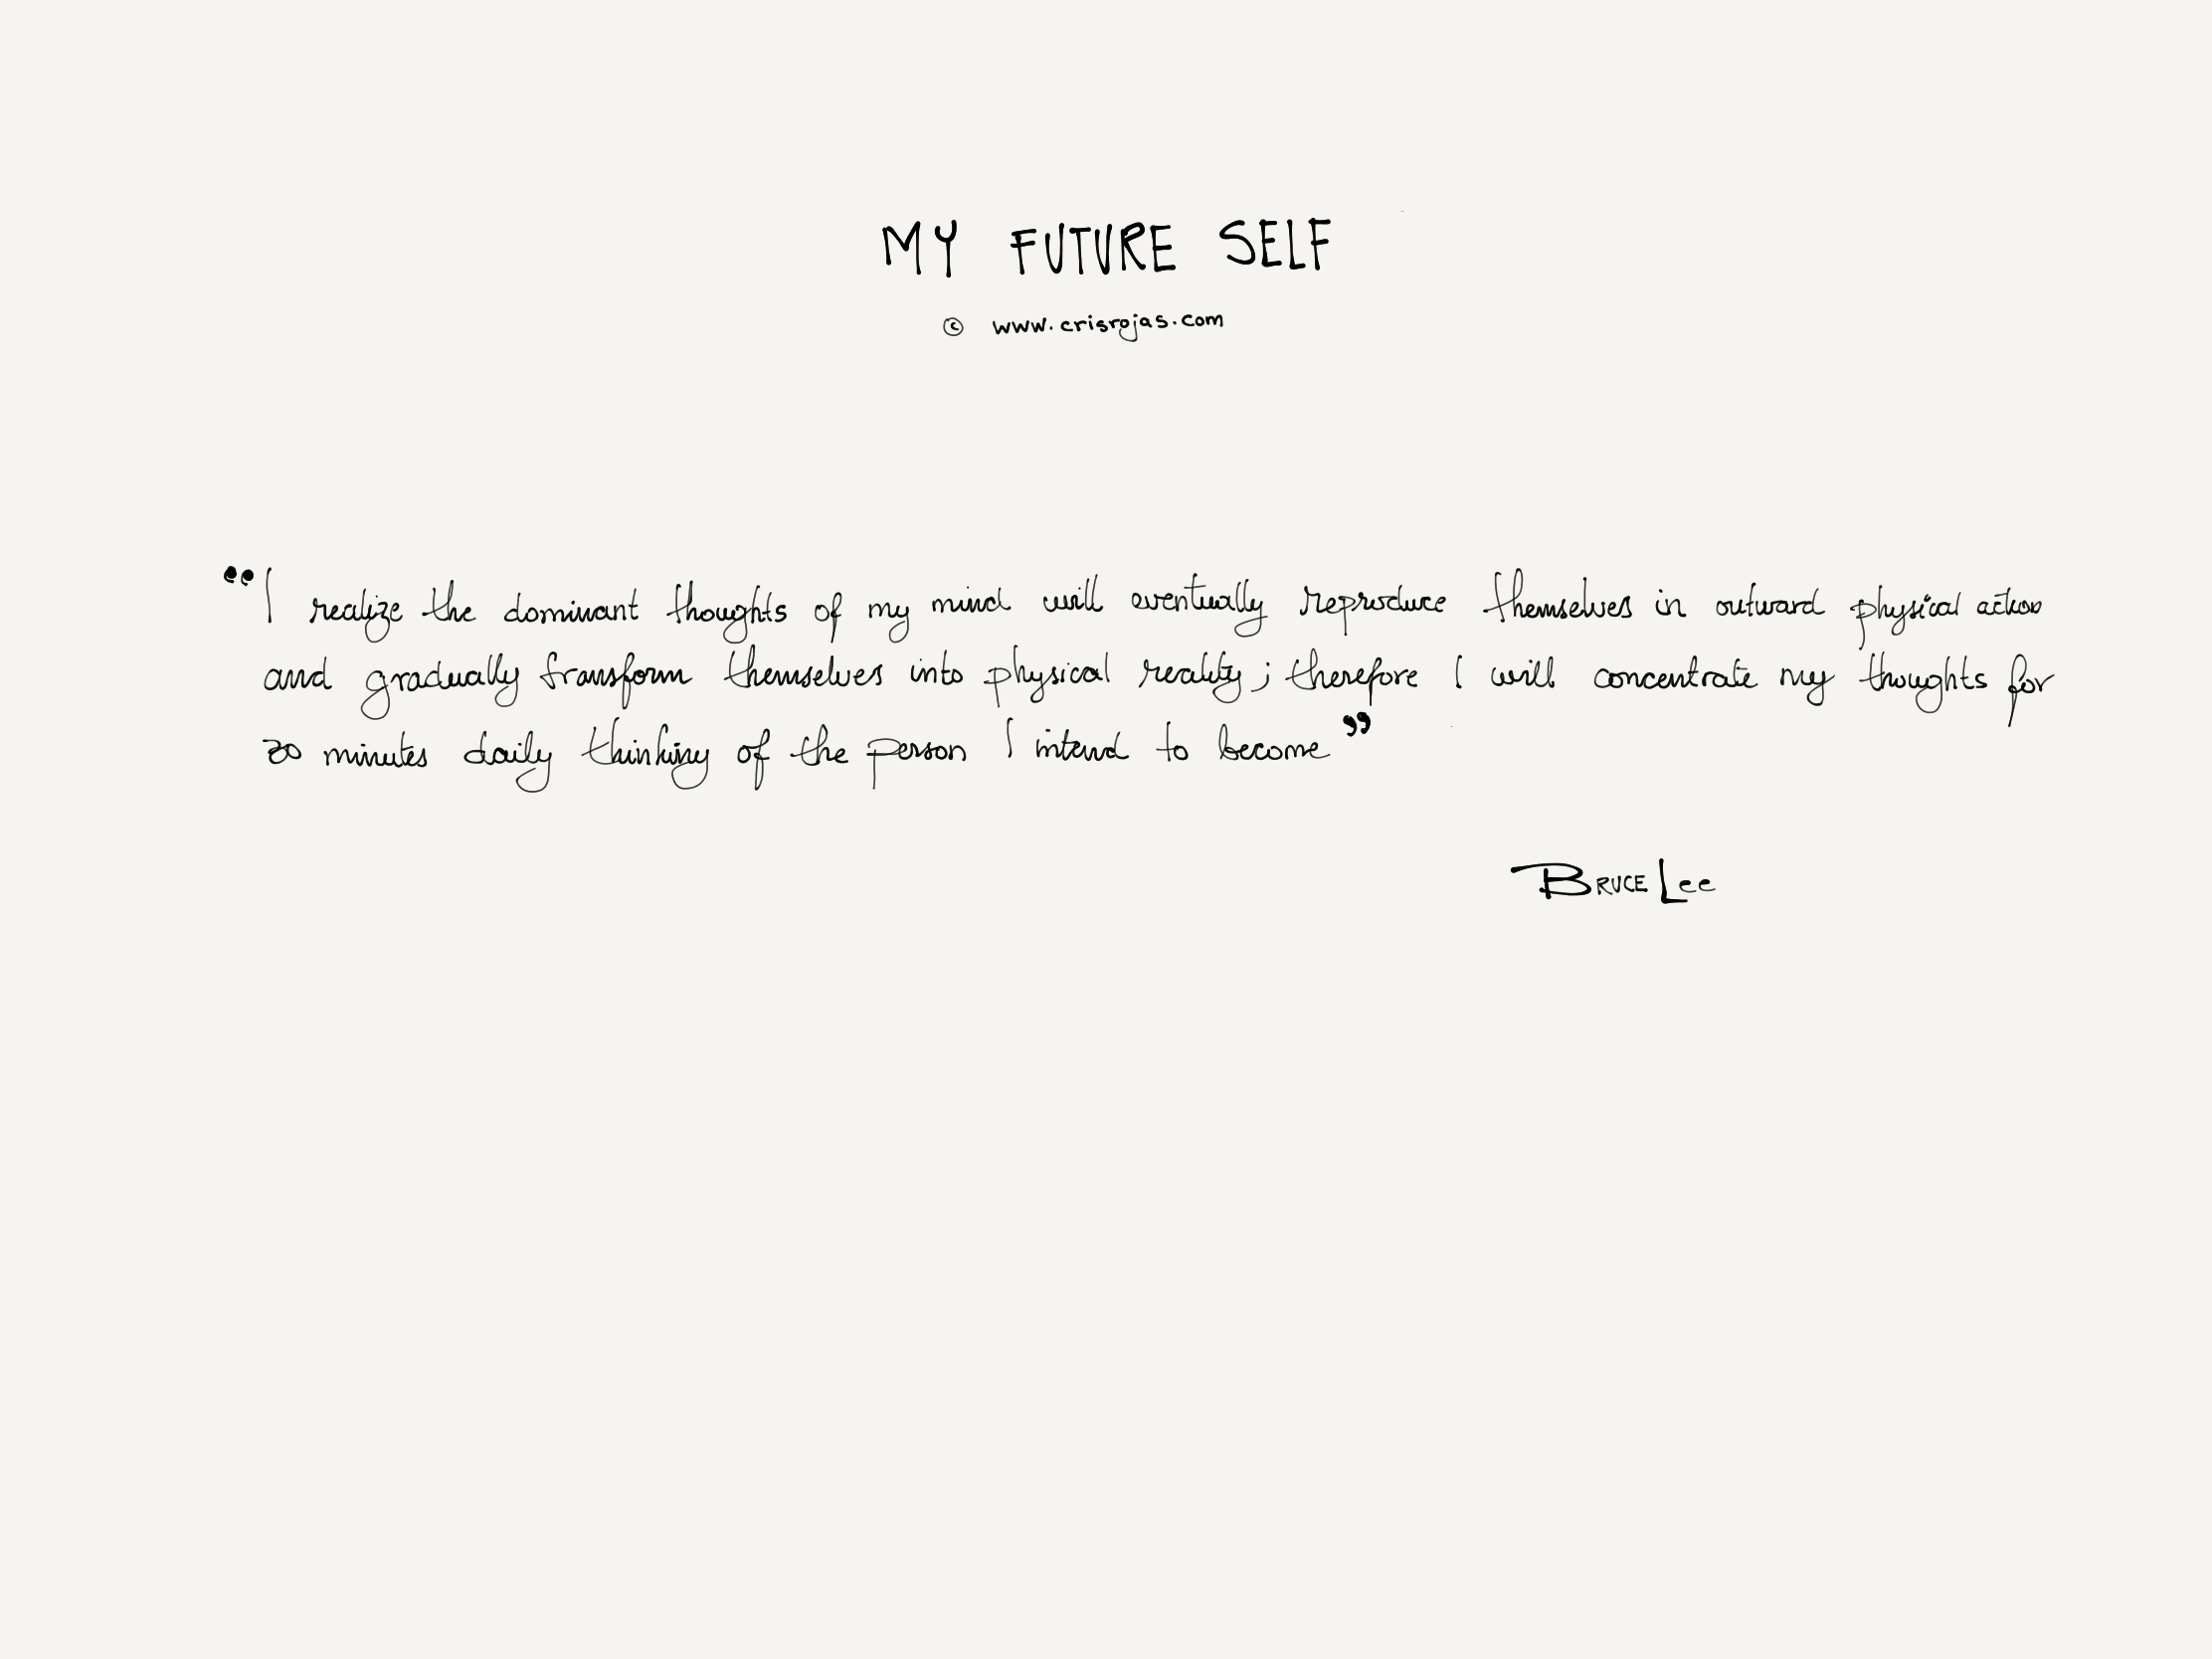 MY FUTURE SELF
© www.crisrojas.com
“I realize the dominant thoughts of my mind will eventually reproduce themselves in outward physical action
and gradually transform themselves into physical reality; therefore I will concentrate my thoughts for
30 minutes daily thinking of the person I intend to become”
BRUCE Lee